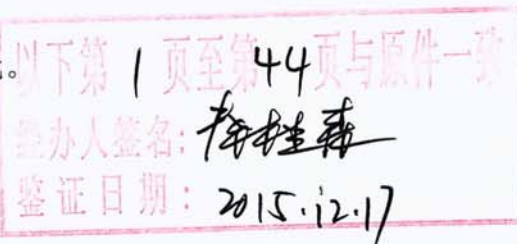 。
以下第1页至第44页与原件一致
经办人签名:
鉴证日期: 2015.12.17